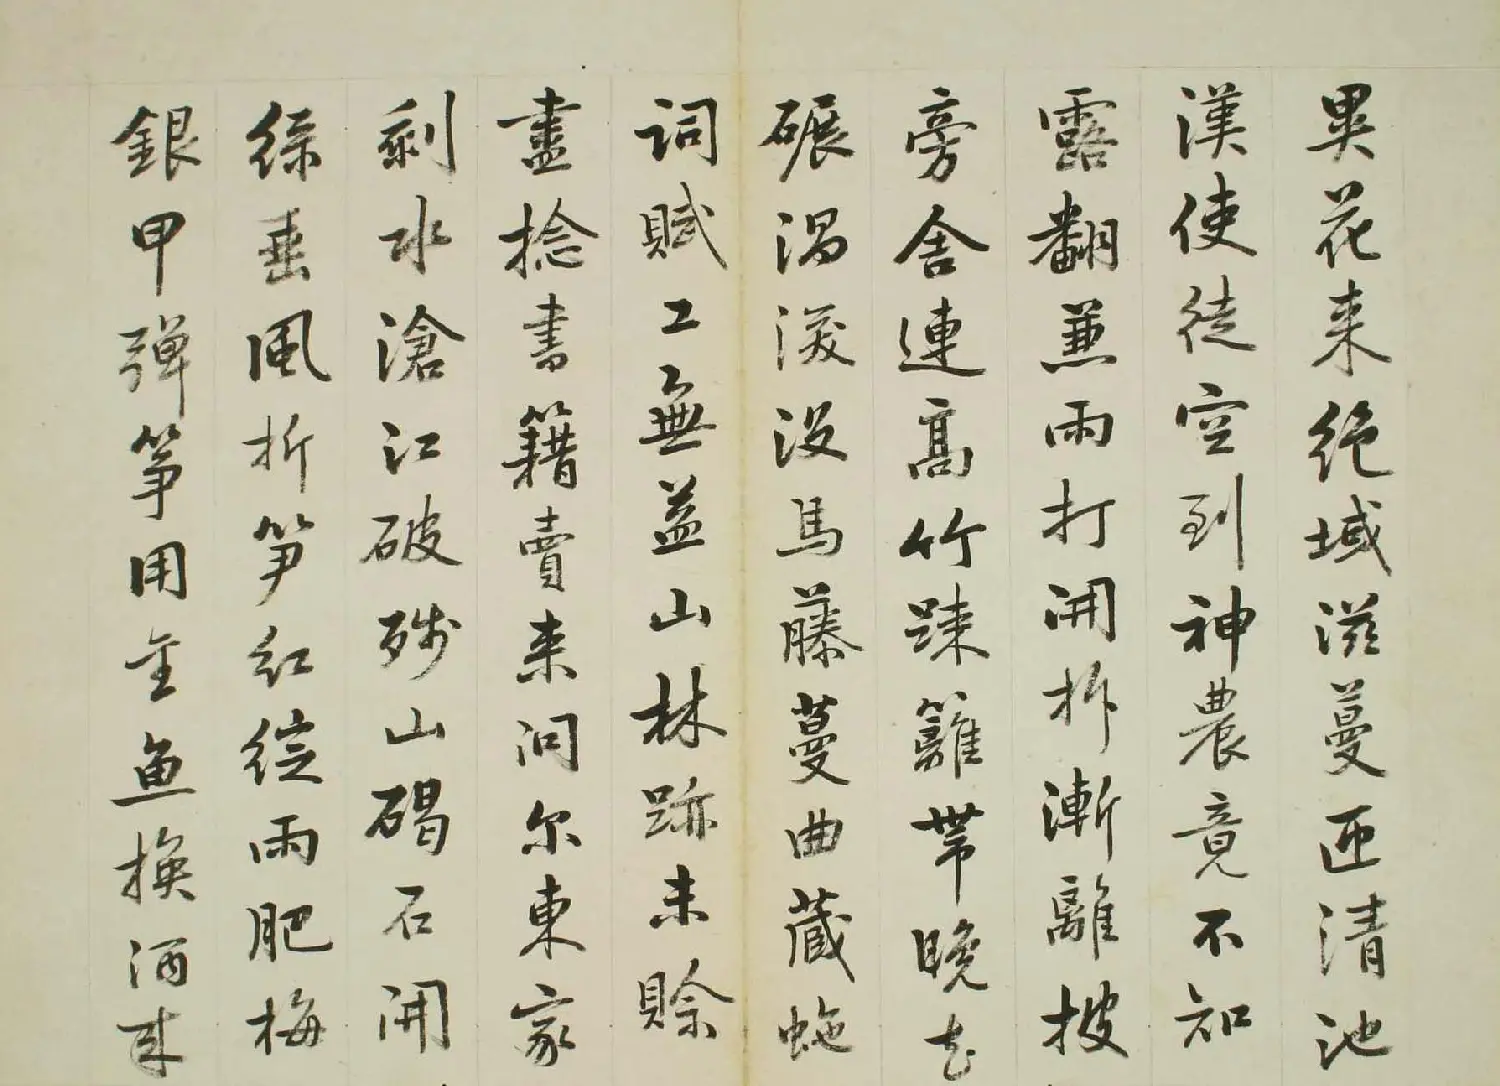 異花来絕域滋蔓匝清池
漢使徒空到神農竟不知
露翻兼雨打開拆漸離披
旁舍連高竹疎籬帶晚花
碾渦深没馬藤蔓曲藏蛇
詞賦工無益山林跡未賒
盡捻書籍賣来問尔東家
剩水滄江破殘山碣石開
綠垂風折笋紅綻雨肥梅
銀甲彈筝用金魚換酒来